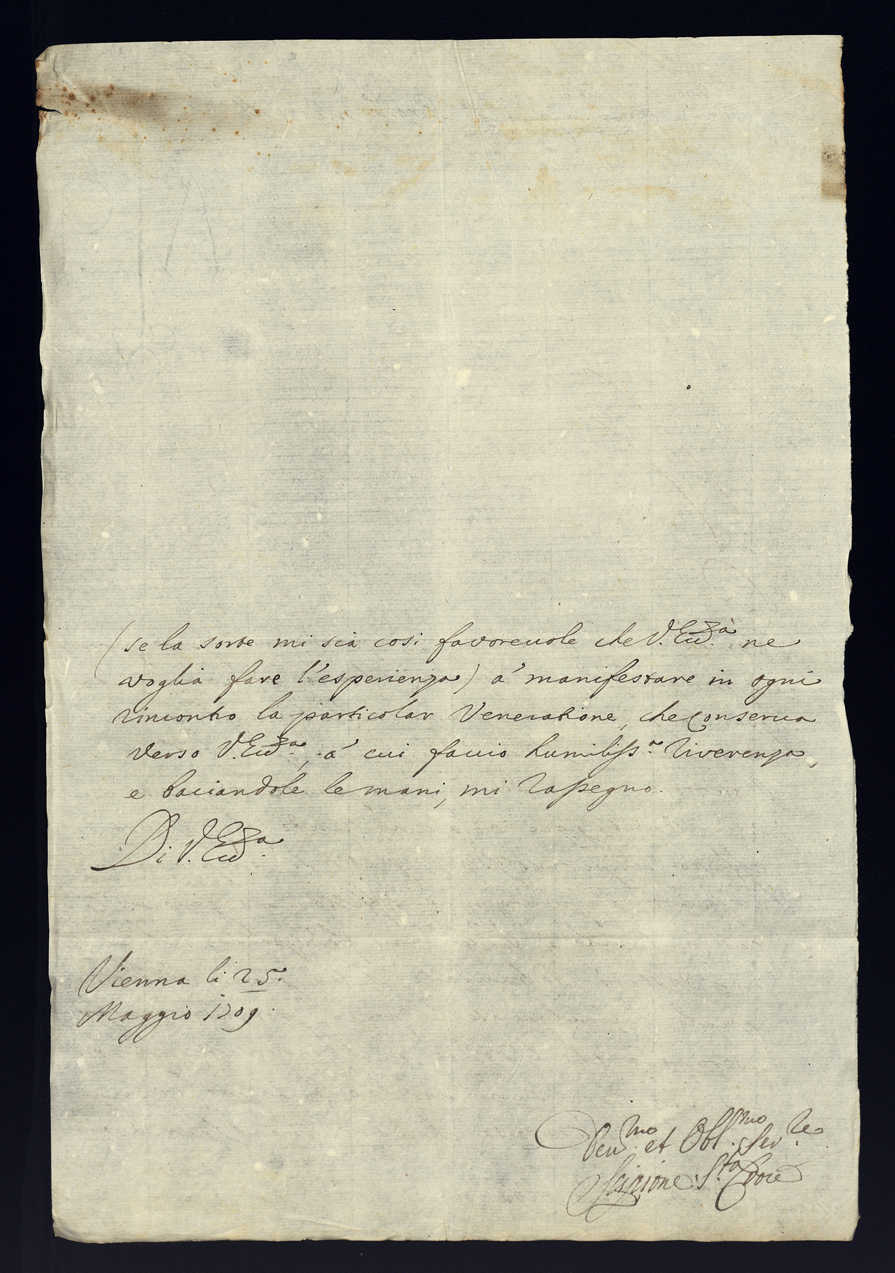 (se la sorte mi sia cosi fauoreuole che V. Ecc.za ne
voglia fare l'esperienza) a' manifestare in ogni
rincontro la particolar Veneratione, che conseruo
verso V. Ecc.za, a' cui faccio humiliss.a riverenza,
e baciandole le mani, mi rassegno.
Di V. Ecc.za
Vienna li 25.
Maggio 1709.
Deu.mo et Obl.mo Ser.re
Scipione S.ta Croce